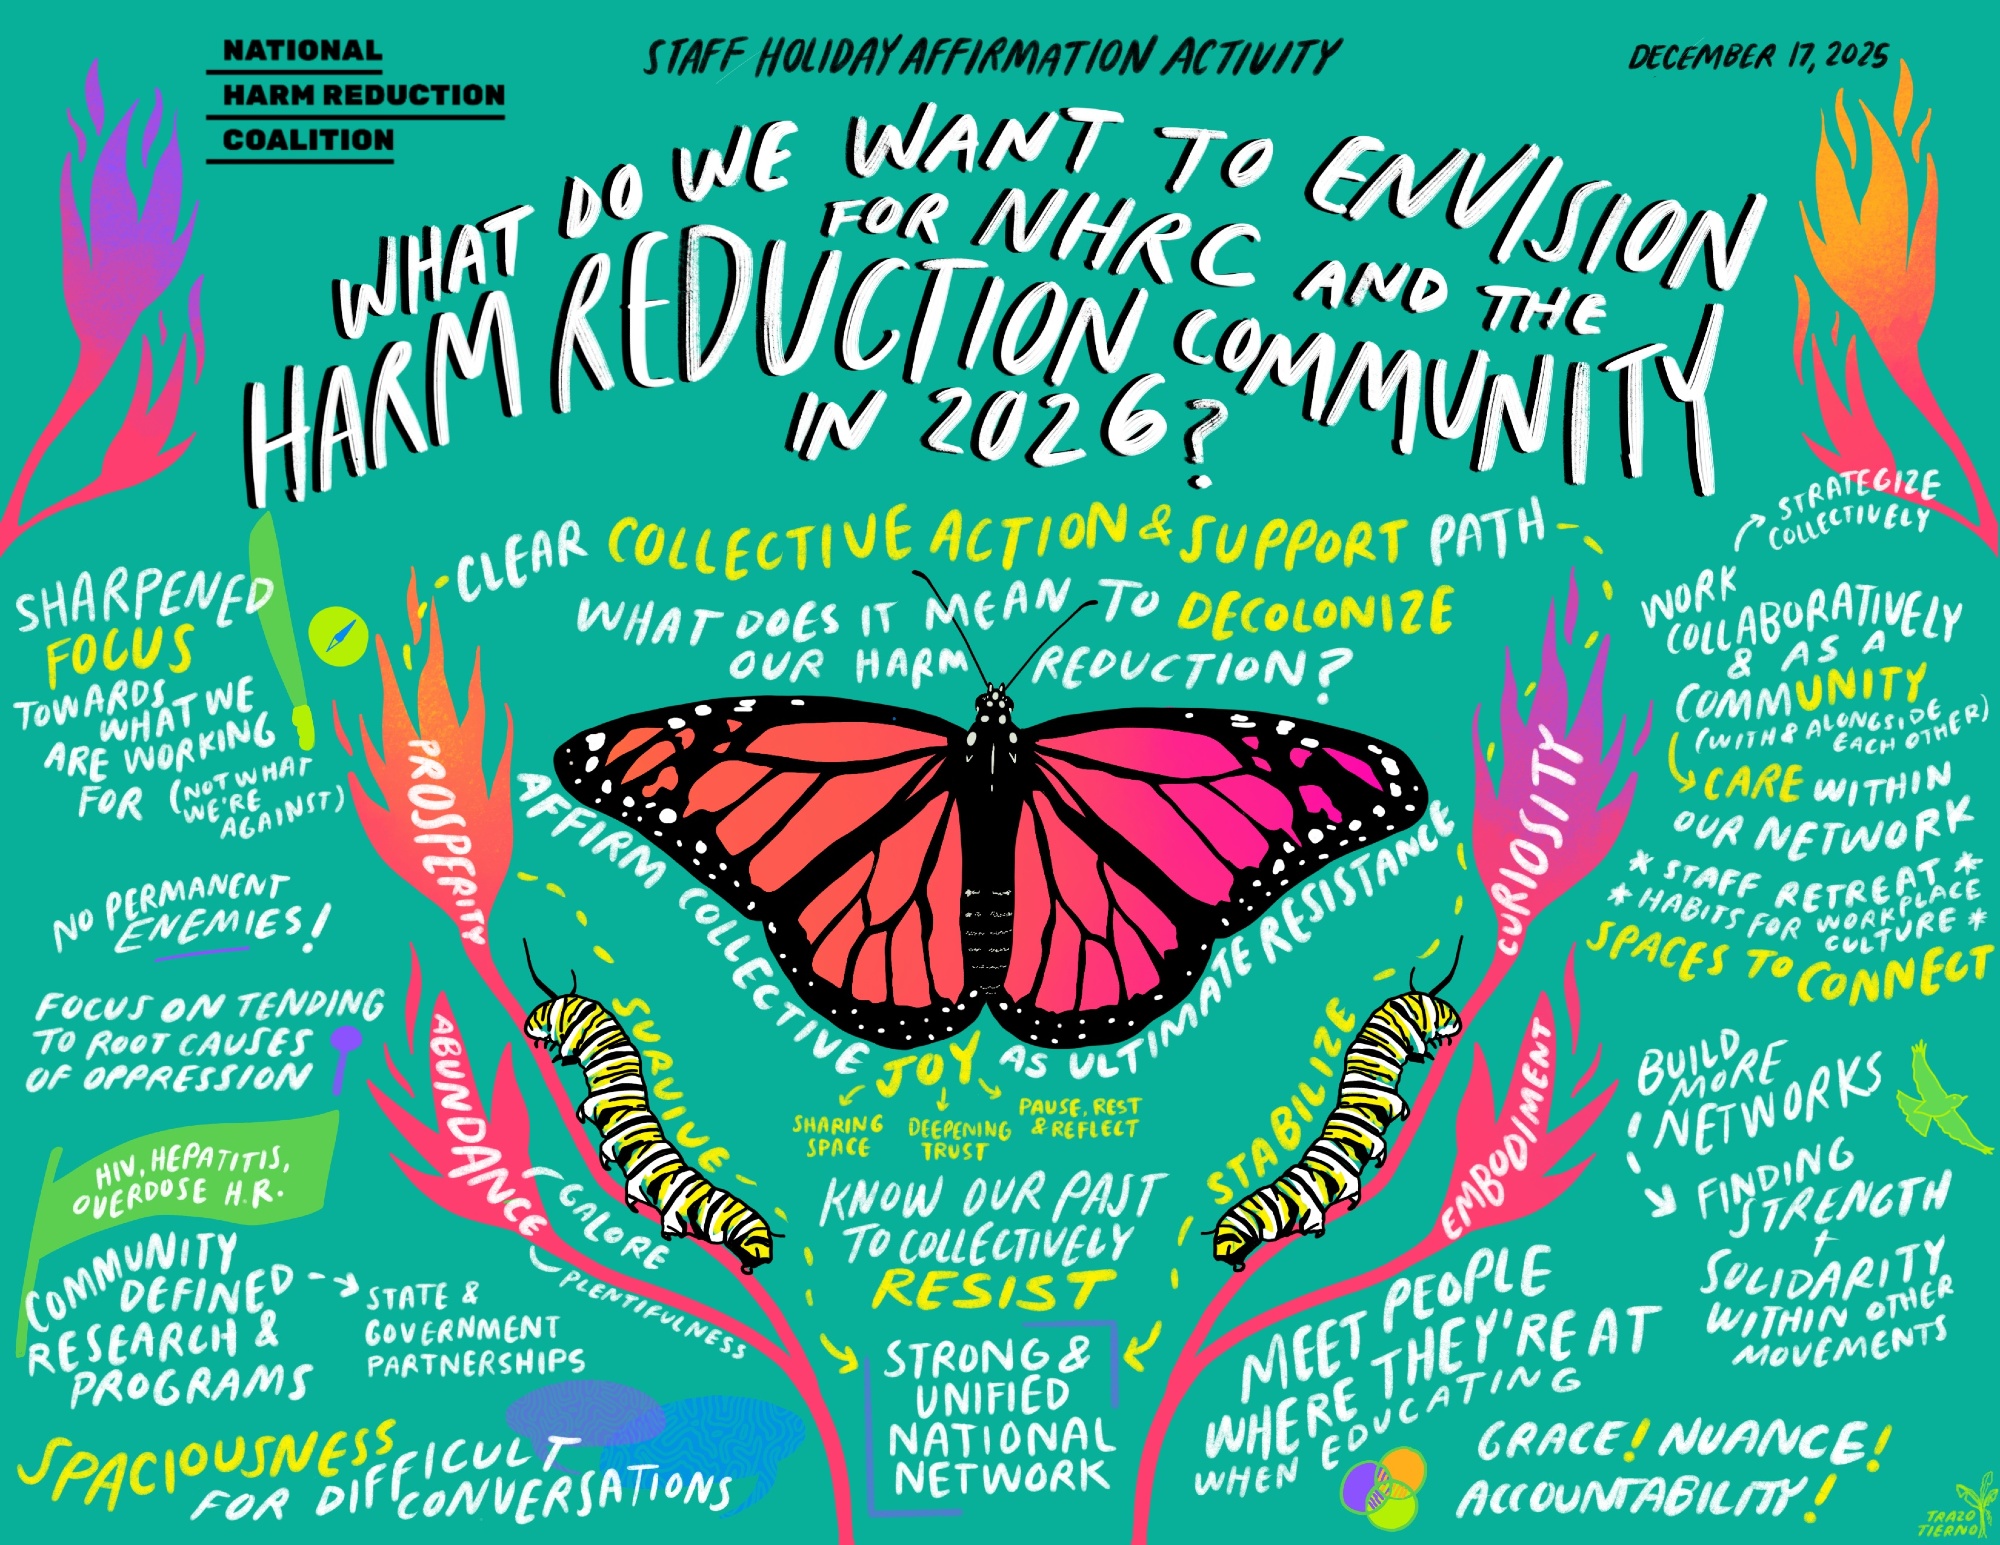 NATIONAL
HARM REDUCTION
COALITION
STAFF HOLIDAY AFFIRMATION ACTIVITY
DECEMBER 17, 2025
WHAT DO WE WANT TO ENVISION
FOR NHRC AND THE
HARM REDUCTION COMMUNITY
IN 2026?
CLEAR COLLECTIVE ACTION & SUPPORT PATH
WHAT DOES IT MEAN TO DECOLONIZE
OUR HARM REDUCTION?
SHARPENED
FOCUS
TOWARDS
WHAT WE
ARE WORKING
FOR (NOT WHAT
WE'RE
AGAINST)
NO PERMANENT
ENEMIES!
FOCUS ON TENDING
TO ROOT CAUSES
OF OPPRESSION
HIV, HEPATITIS,
OVERDOSE H.R.
COMMUNITY
DEFINED
RESEARCH &
PROGRAMS
STATE &
GOVERNMENT
PARTNERSHIPS
SPACIOUSNESS
FOR DIFFICULT
CONVERSATIONS
PROSPERITY
ABUNDANCE
GALORE
PLENTIFULNESS
SURVIVE
AFFIRM COLLECTIVE JOY AS ULTIMATE RESISTANCE
SHARING
SPACE
DEEPENING
TRUST
PAUSE, REST
& REFLECT
KNOW OUR PAST
TO COLLECTIVELY
RESIST
STRONG &
UNIFIED
NATIONAL
NETWORK
STABILIZE
CURIOSITY
EMBODIMENT
STRATEGIZE
COLLECTIVELY
WORK
COLLABORATIVELY
& AS A
COMMUNITY
(WITH & ALONGSIDE
EACH OTHER)
CARE WITHIN
OUR NETWORK
* STAFF RETREAT *
* HABITS FOR WORKPLACE
CULTURE *
SPACES TO CONNECT
BUILD
MORE
NETWORKS
FINDING
STRENGTH
+
SOLIDARITY
WITHIN OTHER
MOVEMENTS
MEET PEOPLE
WHERE THEY'RE AT
WHEN EDUCATING
GRACE! NUANCE!
ACCOUNTABILITY!
TRAZO
TIERNO